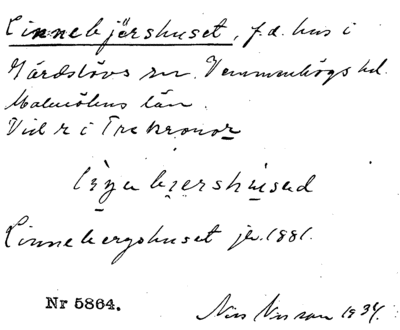 Linnebjershuset, f.d. hus i
Gärdslövs sn. Vemmenhögs hd.
Malmöhus län.
Vid r i Trekronor
Linnebergshuset jb. 1881.
Nr 5864.
Nils Nilsson 1934.